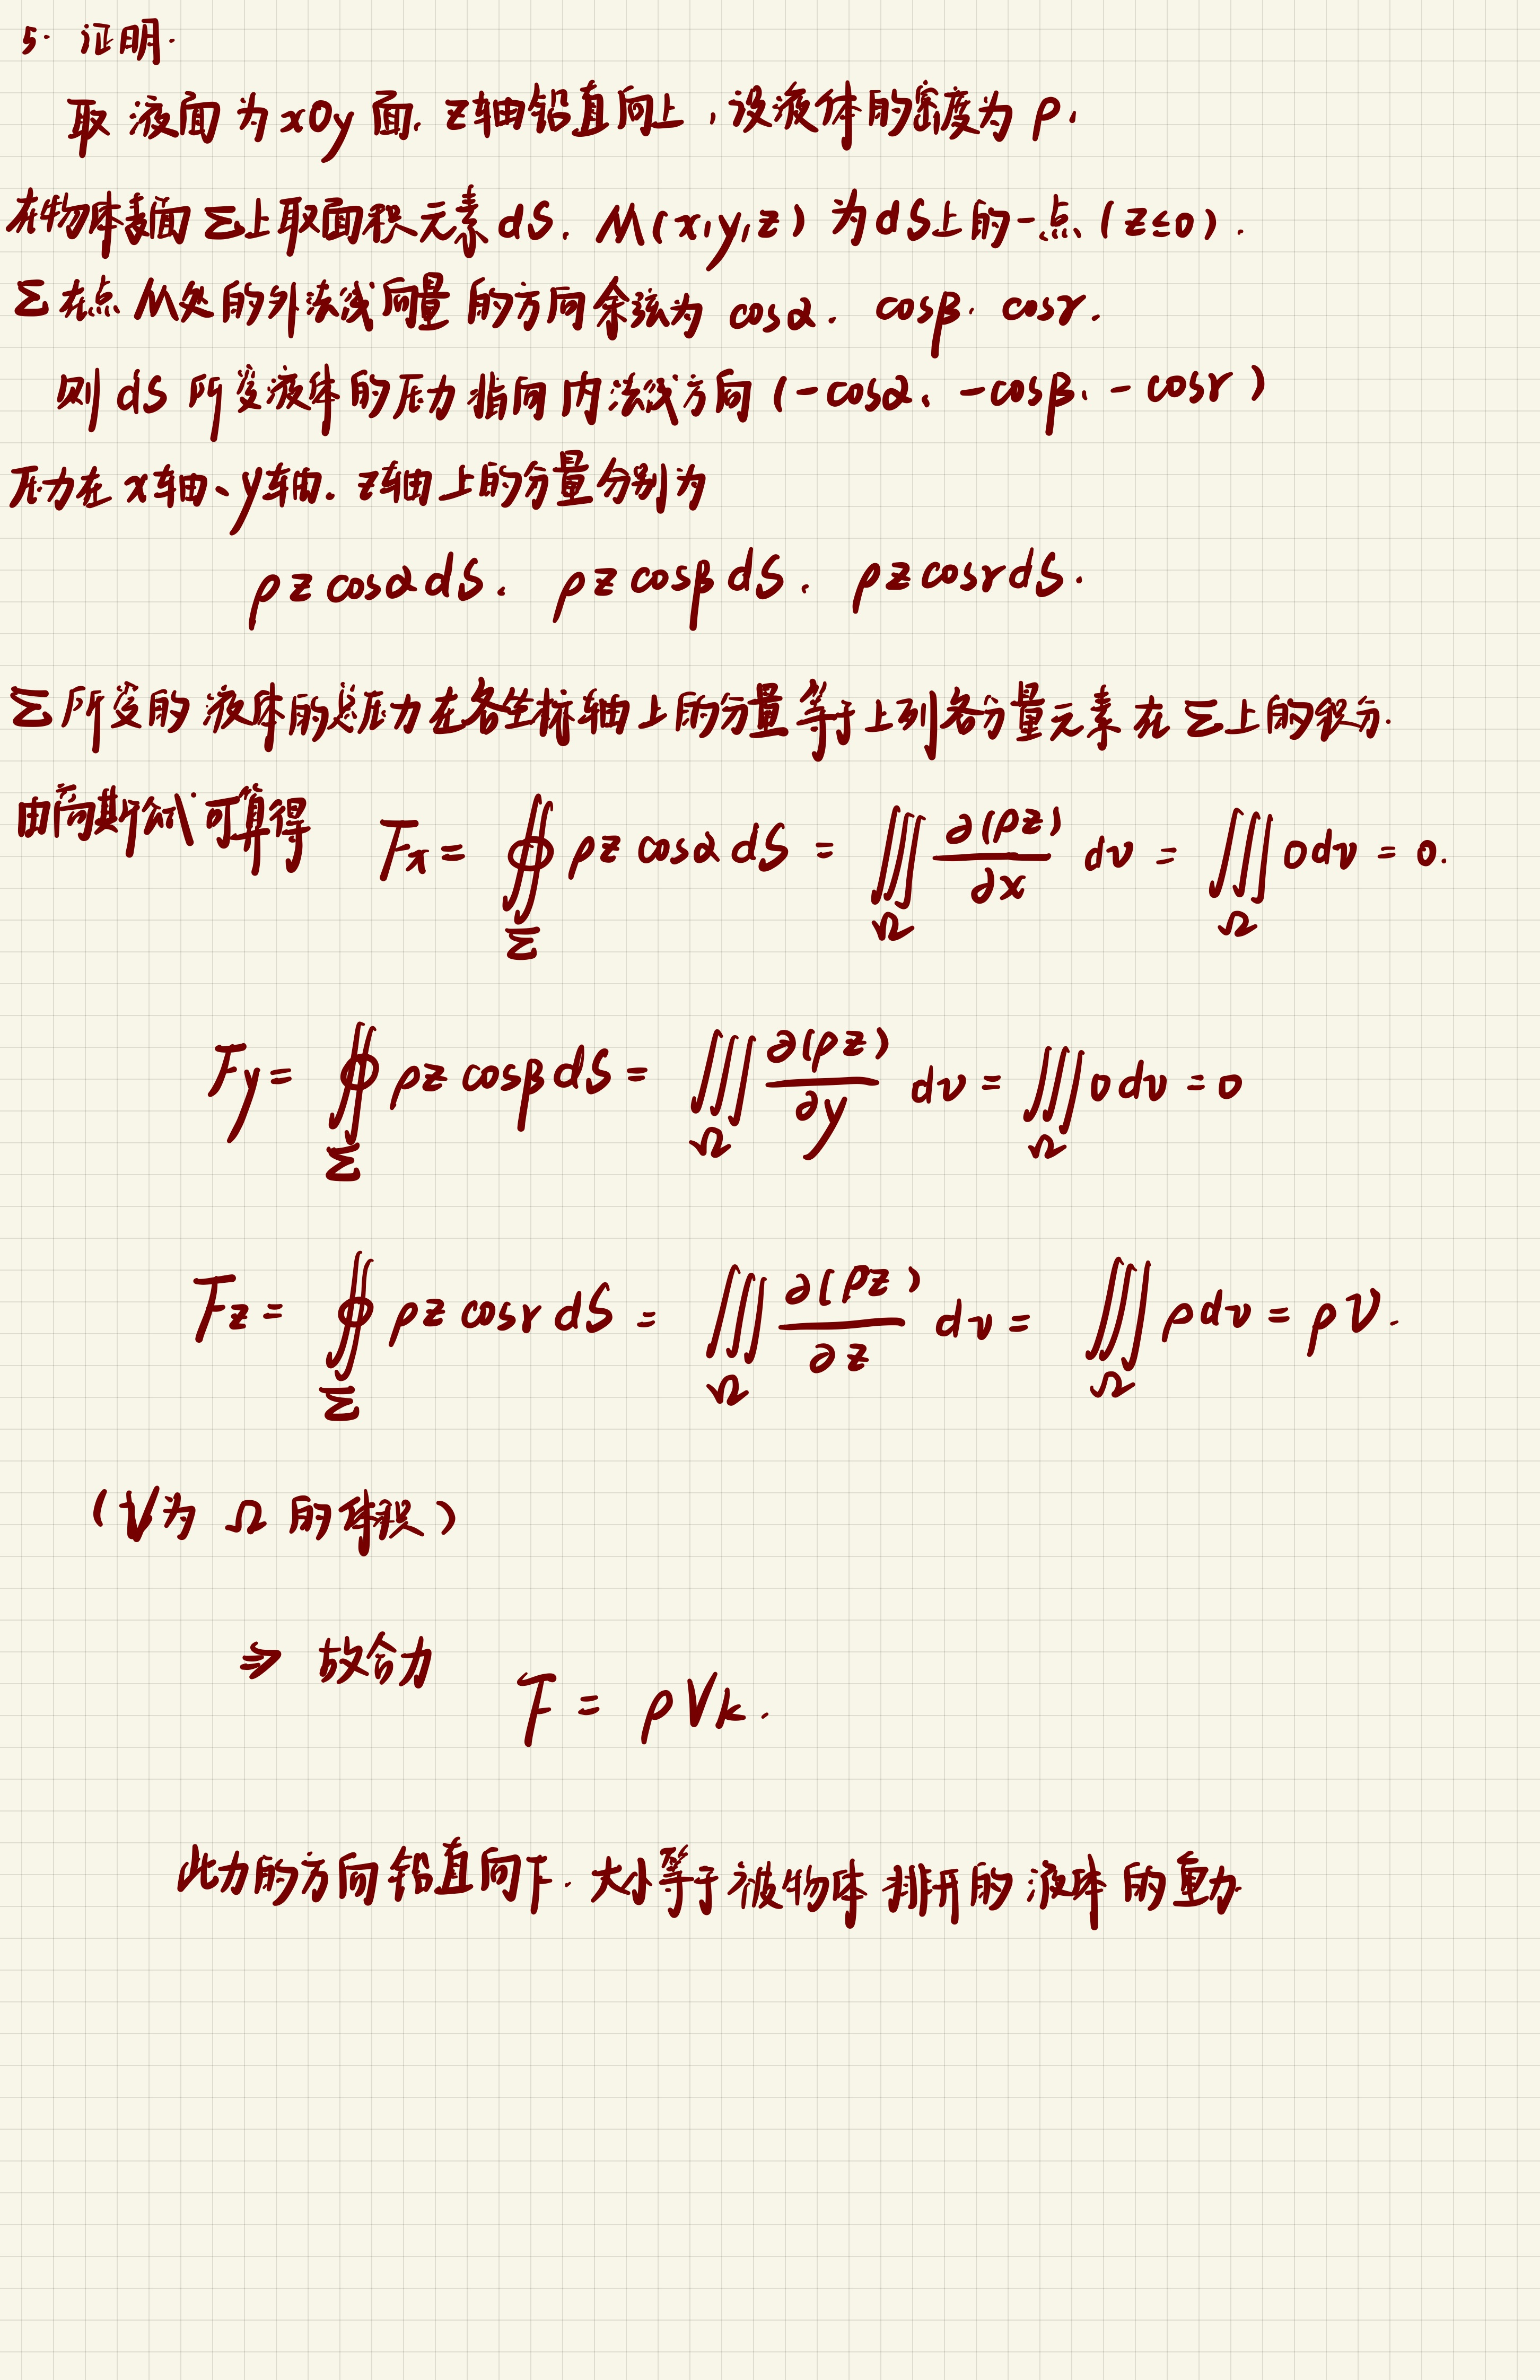 5. 证明.
取液面为 xOy 面. z轴铅直向上，设液体的密度为 ρ.
在物体表面 Σ上取面积元素 dS. M(x,y,z) 为 dS上的一点 (z≤0).
Σ在点 M处的外法线向量的方向余弦为 cosα. cosβ. cosγ.
则 dS 所受液体的压力指向内法线方向 (-cosα、-cosβ、-cosγ)
压力在 x轴、y轴. z轴上的分量分别为
ρz cosα dS. ρz cosβ dS. ρz cosγ dS.
Σ所受的液体的总压力在各坐标轴上的分量等于上列各分量元素在 Σ上的积分.
由高斯公式可算得 Fx = ∯_Σ ρz cosα dS = ∭_Ω ∂(ρz)/∂x dv = ∭_Ω 0dv = 0.
Fy = ∯_Σ ρz cosβ dS = ∭_Ω ∂(ρz)/∂y dv = ∭_Ω 0dv = 0
Fz = ∯_Σ ρz cosγ dS = ∭_Ω ∂(ρz)/∂z dv = ∭_Ω ρdv = ρV.
(V为 Ω 的体积)
⇒ 故合力
F = ρVk.
此力的方向铅直向下. 大小等于被物体排开的液体的重力